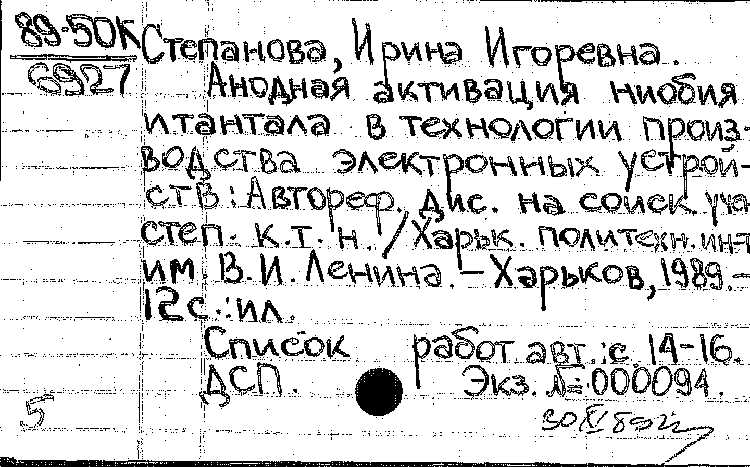 89-50К
6927
Степанова, Ирина Игоревна.
Анодная активация ниобия
и тантала в технологии произ-
водства электронных устрой-
ств: Автореф. Дис. на соиск. уча
степ. к.т.н./Харьк. политехн. ин-т
им. В.И.Ленина.-Харьков, 1989.-
12с.:ил.
Список работ авт.: с. 14-16.
ДСП. Экз. №:000094.
5
30 XI